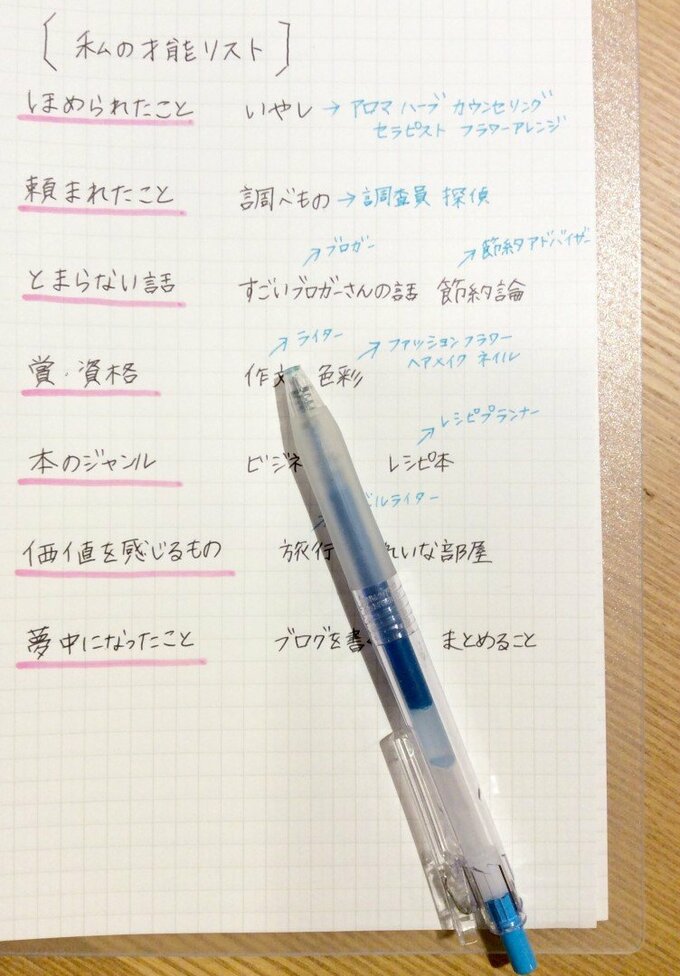 [私の才能リスト]
ほめられたこと いやし → アロマ ハーブ カウンセリング
セラピスト フラワーアレンジ
頼まれたこと 調べもの → 調査員 探偵
ブロガー 節約アドバイザー
とまらない話 すごいブロガーさんの話 節約論
ライター ファッション フラワー
ヘアメイク ネイル
賞・資格 作文 色彩
レシピプランナー
本のジャンル ビジネ レシピ本
ルライター
価値を感じるもの 旅行 れいな部屋
夢中になったこと ブログを書 まとめること